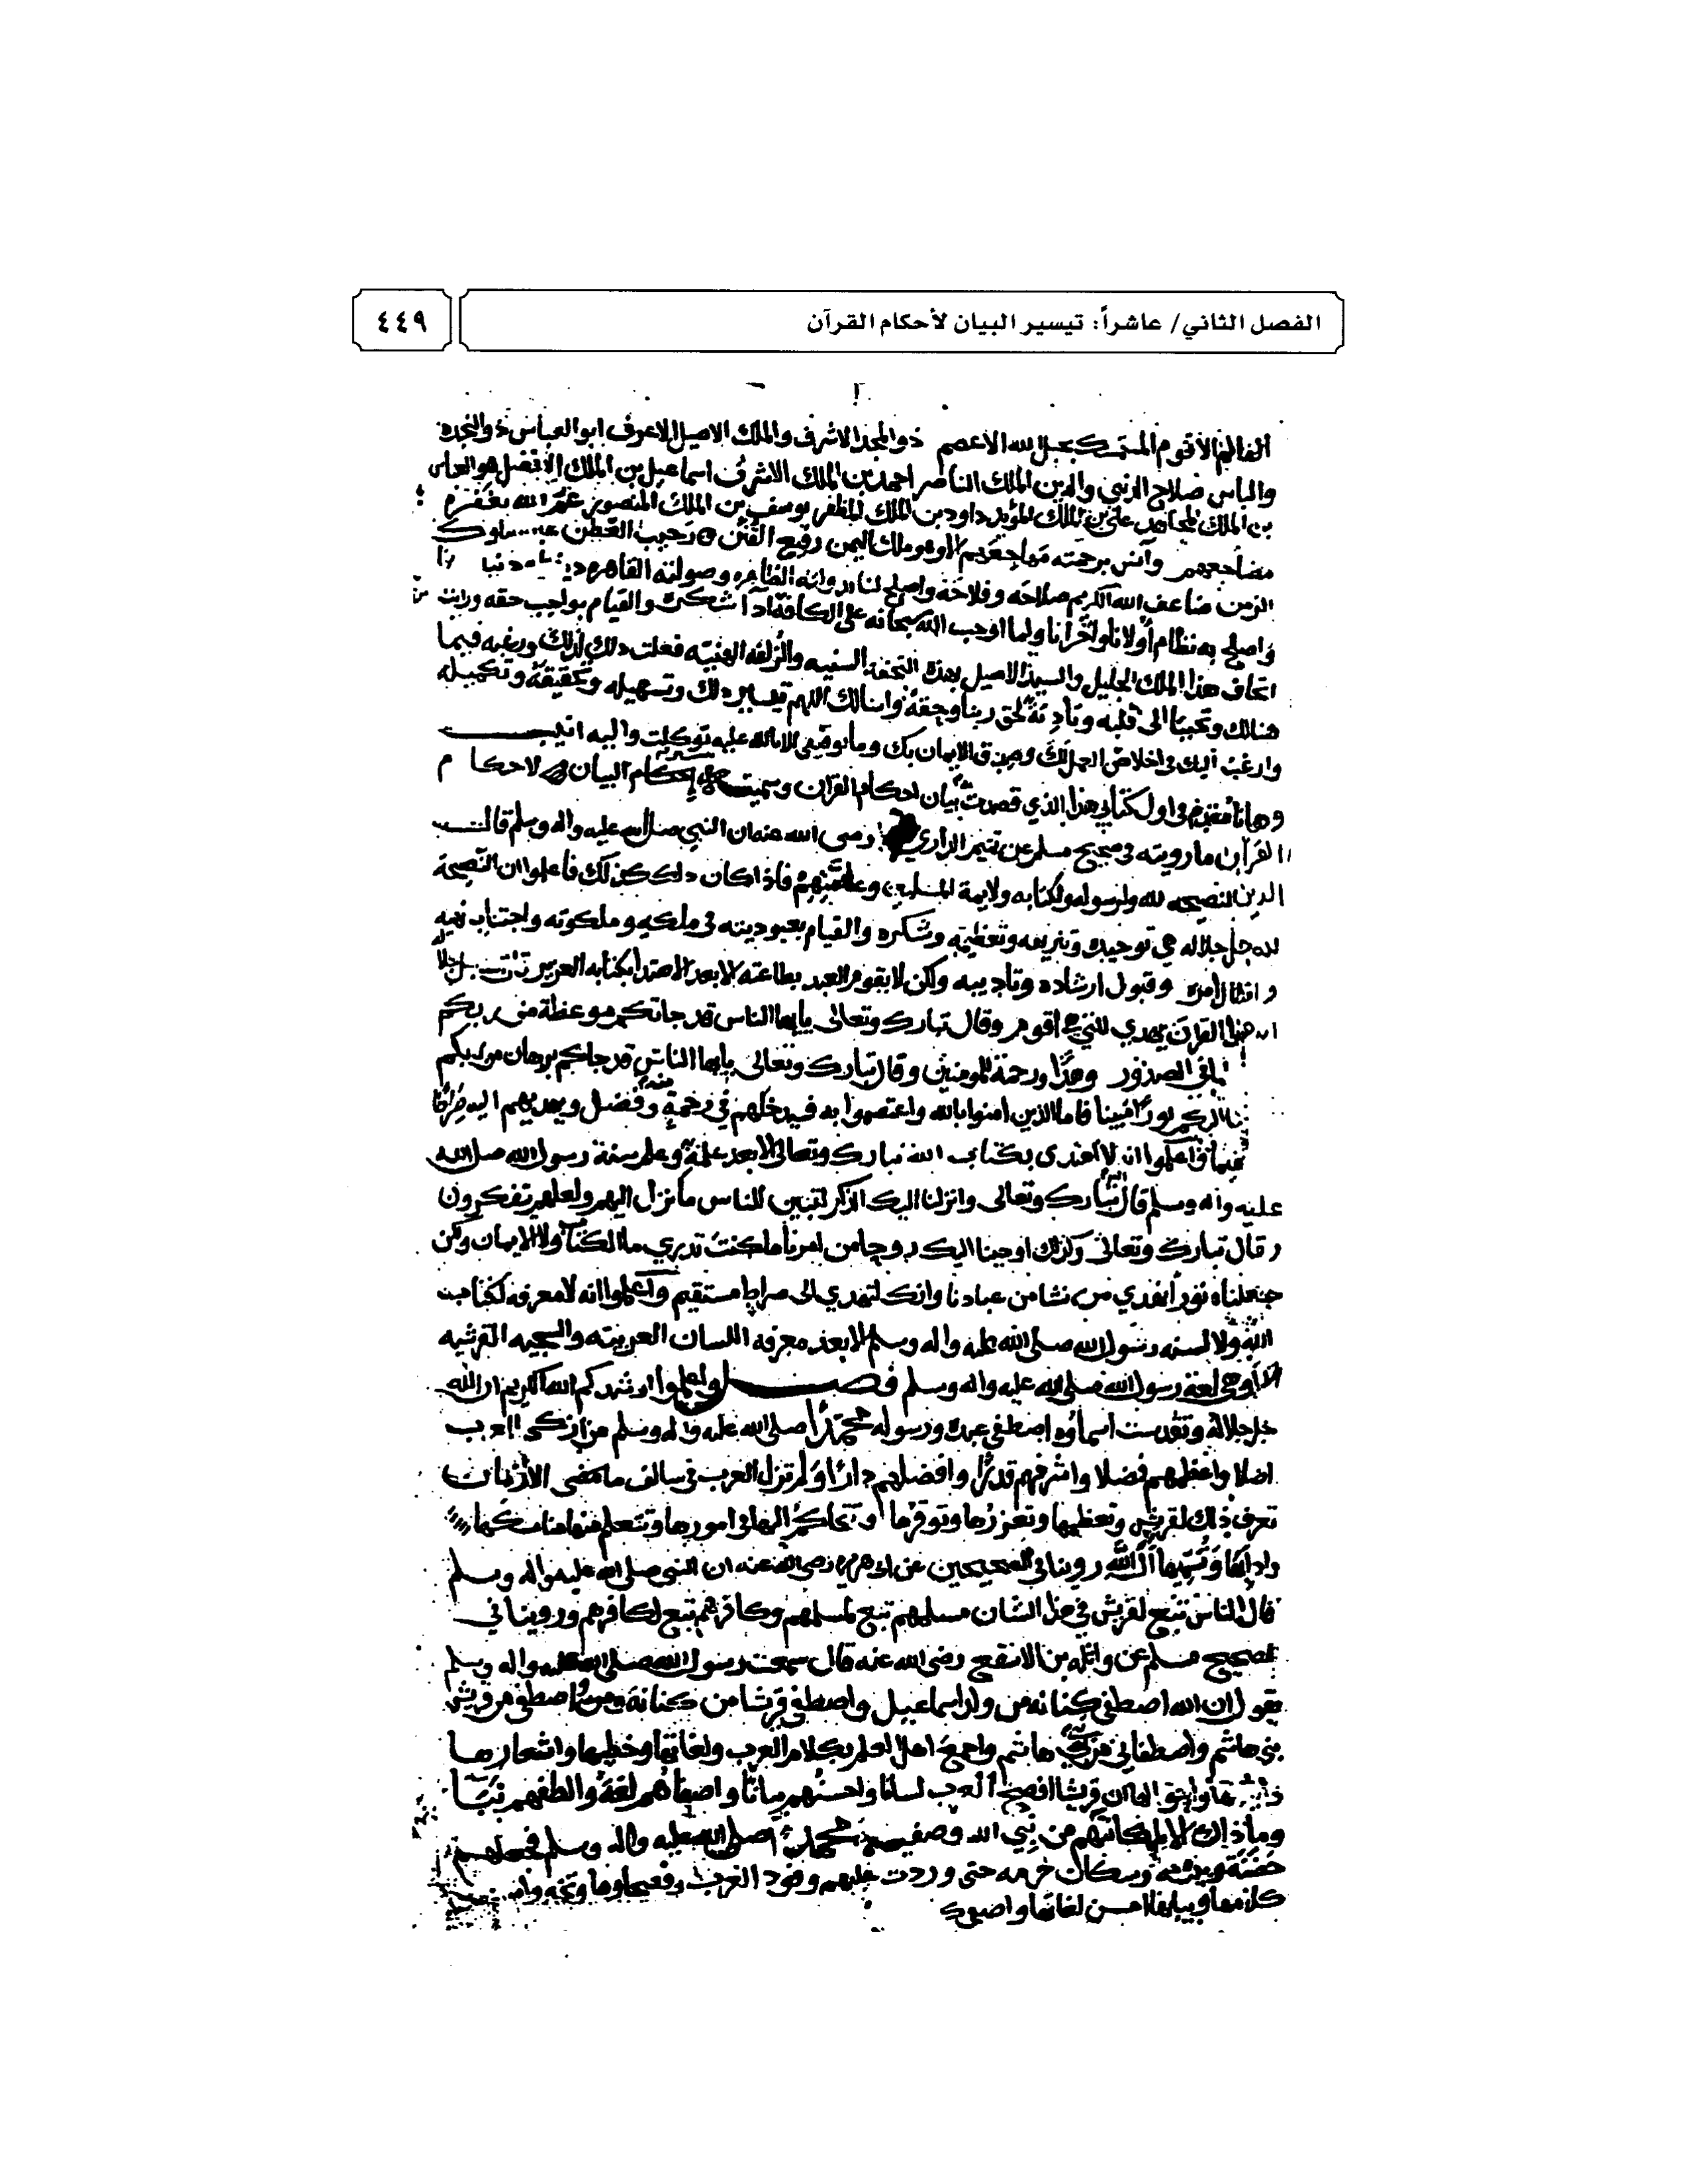 الفصل الثاني/ عاشراً: تيسير البيان لأحكام القرآن
٤٤٩
الاقوم المتمسك بحبل الله الاعصم ذو المجد الاشرف والملك الاصيل الاعرف ابو العباس ذو النجده
والباس صلاح الدنيى والدين الملك الناصر احمد بن الملك الاشرف اسماعيل بن الملك الافضل هو العباس
بن الملك المجاهد علي بن الملك المؤيد داود بن الملك المظفر يوسف بن الملك المنصور عمر الله
مضاجعهم وآنس برحمته مهاجعهم الا وهو ملك اليمن رفيع القنن رحيب العطن
الزمن ضاعف الله الكريم صلاحه وفلاحه واصلح لنا بدولته الظاهره وصولته القاهره
واصلح به نظام أولانا وأخرانا ولما اوجب الله سبحانه على الكافة شكره والقيام بواجب حقه ورايت
اتحاف هذا الملك الجليل والسيد الاصيل بهذه التحفة السنيه والزلفه فعلت ذلك لذلك ورغبه فيما
هنالك وتحببا الى قلبه وتاديَة لحق ربنا وحقه واسالك اللهم تيسير ذلك وتسهيله وتحقيقه وتكميله
وارغب اليك في اخلاص العمل لك وصدق الايمان بك وما توفيقي الا بالله عليه توكلت واليه انيب
وها نا مقدم في اول كتابي هذا الذي قصدت بيان احكام القران وسميته البيان لاحكام
القرآن ما رويته في صحيح مسلم عن تميم الداري رضى الله عنه ان النبي صلى الله عليه واله وسلم قال
الدين النصيحه لله ولرسوله ولكتابه ولايمة المسلمين وعامتهم فاذا كان ذلك كذلك فاعلموا ان النصيحة
لله جل جلاله هي توحيده وتنزيهه وتعظيمه وشكره والقيام بعبوديته في ملكه وملكوته واجتناب نهيه
وامتثال امره وقبول ارشاده وتاديبه ولكن لا يقوم العبد بطاعته الا بعد الاهتدا بكتابه العزيز
ان هذا القرآن يهدي للتي هي اقوم وقال تبارك وتعالى يايها الناس قد جاتكم موعظة من ربكم
لما في الصدور وهدًا ورحمة للمومنين وقال تبارك وتعالى يايها الناس قد جاكم برهان من ربكم
اليكم نورا مبينا فاما الذين امنوا بالله واعتصموا به فسيدخلهم في رحمة منه وفضل ويهديهم اليه صراطا
واعلموا انه لا اهتدى بكتاب الله تبارك وتعالى الا بعد علمه وعلم سنة رسول الله صلى الله
عليه واله وسلم قال الله تبارك وتعالى وانزلنا اليك الذكر لتبين للناس ما نزل اليهم ولعلهم يتفكرون
وقال تبارك وتعالى وكذلك اوحينا اليك روحا من امرنا ما كنت تدري ما الكتاب ولا الايمان ولكن
جعلناه نورا نهدي من نشا من عبادنا وانك لتهدي الى صراط مستقيم واعلموا انه لا معرفه لكتاب
الله ولا لسنه رسول الله صلى الله عليه واله وسلم الا بعد معرفه اللسان العربيه والسجيه القرشيه
الا وهي لغة رسول الله صلى الله عليه واله وسلم فصل واعلموا ارشدكم الله الكريم ان الله
جل جلاله وتقدست اسماؤه اصطفى عبده ورسوله محمدًا صلى الله عليه واله وسلم من ازكى العرب
اصلا واعظمهم فضلا واشرفهم قدرًا وافضلهم دارًا ولم تزل العرب في سالف ما مضى الازمان
تعرف ذلك لقريش وتعظيمها وتعزرها وتوقرها وتتحاكم اليها في امورها وتتعلم منها مناسكها
الله روينا في الصحيحين عن ابي هريرة رضى الله عنه ان النبي صلى الله عليه واله وسلم
قال الناس تبع لقريش في هذا الشان مسلمهم تبع لمسلمهم وكافرهم تبع لكافرهم وروينا في
صحيح مسلم عن واثلة بن الاسقع رضى الله عنه قال سمعت رسول الله صلى الله عليه واله وسلم
يقول ان الله اصطفى كنانه من ولد اسماعيل واصطفى قريشا من كنانة واصطفى من قريش
بني هاشم واصطفاني من بني هاشم واجمع اهل العلم بكلام العرب ولغاتها وخطبها واشعارها
ان قريشا افصح العرب لسانا واحسنهم بيانًا واصفاهم لغة والطفهم
وما ذاك الا لمكانهم من نبي الله وصفيه محمد صلى الله عليه واله وسلم فجعلهم
وسكان حرمه حتى وردت عليهم وفود العرب
كلامها احسن لغاتها